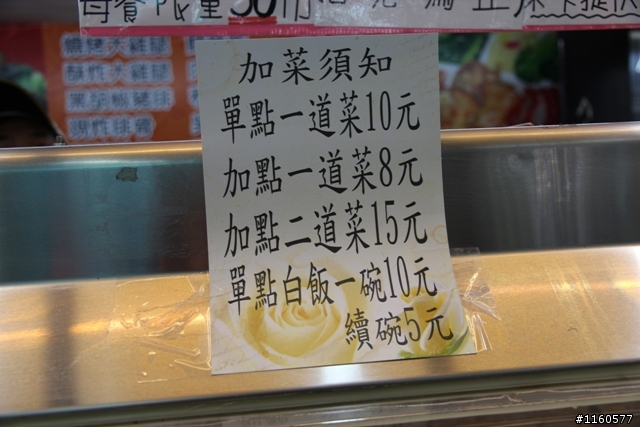 每餐限量50
加菜須知
單點一道菜10元
加點一道菜8元
加點二道菜15元
單點白飯一碗10元
續碗5元
#1160577